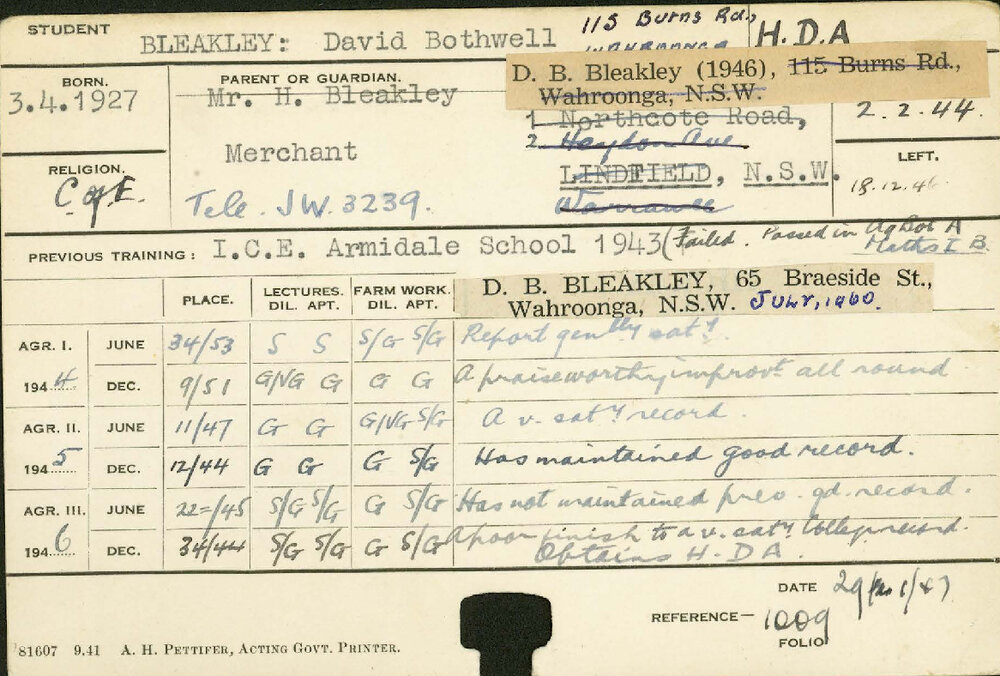 STUDENT BLEAKLEY: David Bothwell 115 Burns Rd., WAHROONGA H.D.A
BORN. 3.4.1927
PARENT OR GUARDIAN.
Mr. H. Bleakley
Merchant
Tele. JW.3239.
D. B. Bleakley (1946), 115 Burns Rd.,
Wahroonga, N.S.W.
1 Northcote Road,
2. Haydon Ave.
LINDFIELD, N.S.W.
Warrawee
2.2.44.
LEFT.
18.12.46
RELIGION.
C of E.
PREVIOUS TRAINING: I.C.E. Armidale School 1943 (Failed. Passed in Ag Bot A
Maths I B.
D. B. BLEAKLEY, 65 Braeside St.,
Wahroonga, N.S.W. JULY, 1960.
PLACE. LECTURES. DIL. APT. FARM WORK. DIL. APT.
AGR. I. JUNE 34/53 S S S/G S/G Report genlly saty.
1944 DEC. 9/51 G/VG G G G A praiseworthy improvt all round
AGR. II. JUNE 11/47 G G G/VG S/G A v. saty record.
1945 DEC. 12/44 G G G S/G Has maintained good record.
AGR. III. JUNE 22=/45 S/G S/G G S/G Has not maintained prev. gd. record.
1946 DEC. 34/44 S/G S/G G S/G A poor finish to a v. saty College record.
Obtains H.D.A.
DATE 29/1/47
REFERENCE— 1009
FOLIO
81607 9.41 A. H. PETTIFER, ACTING GOVT. PRINTER.